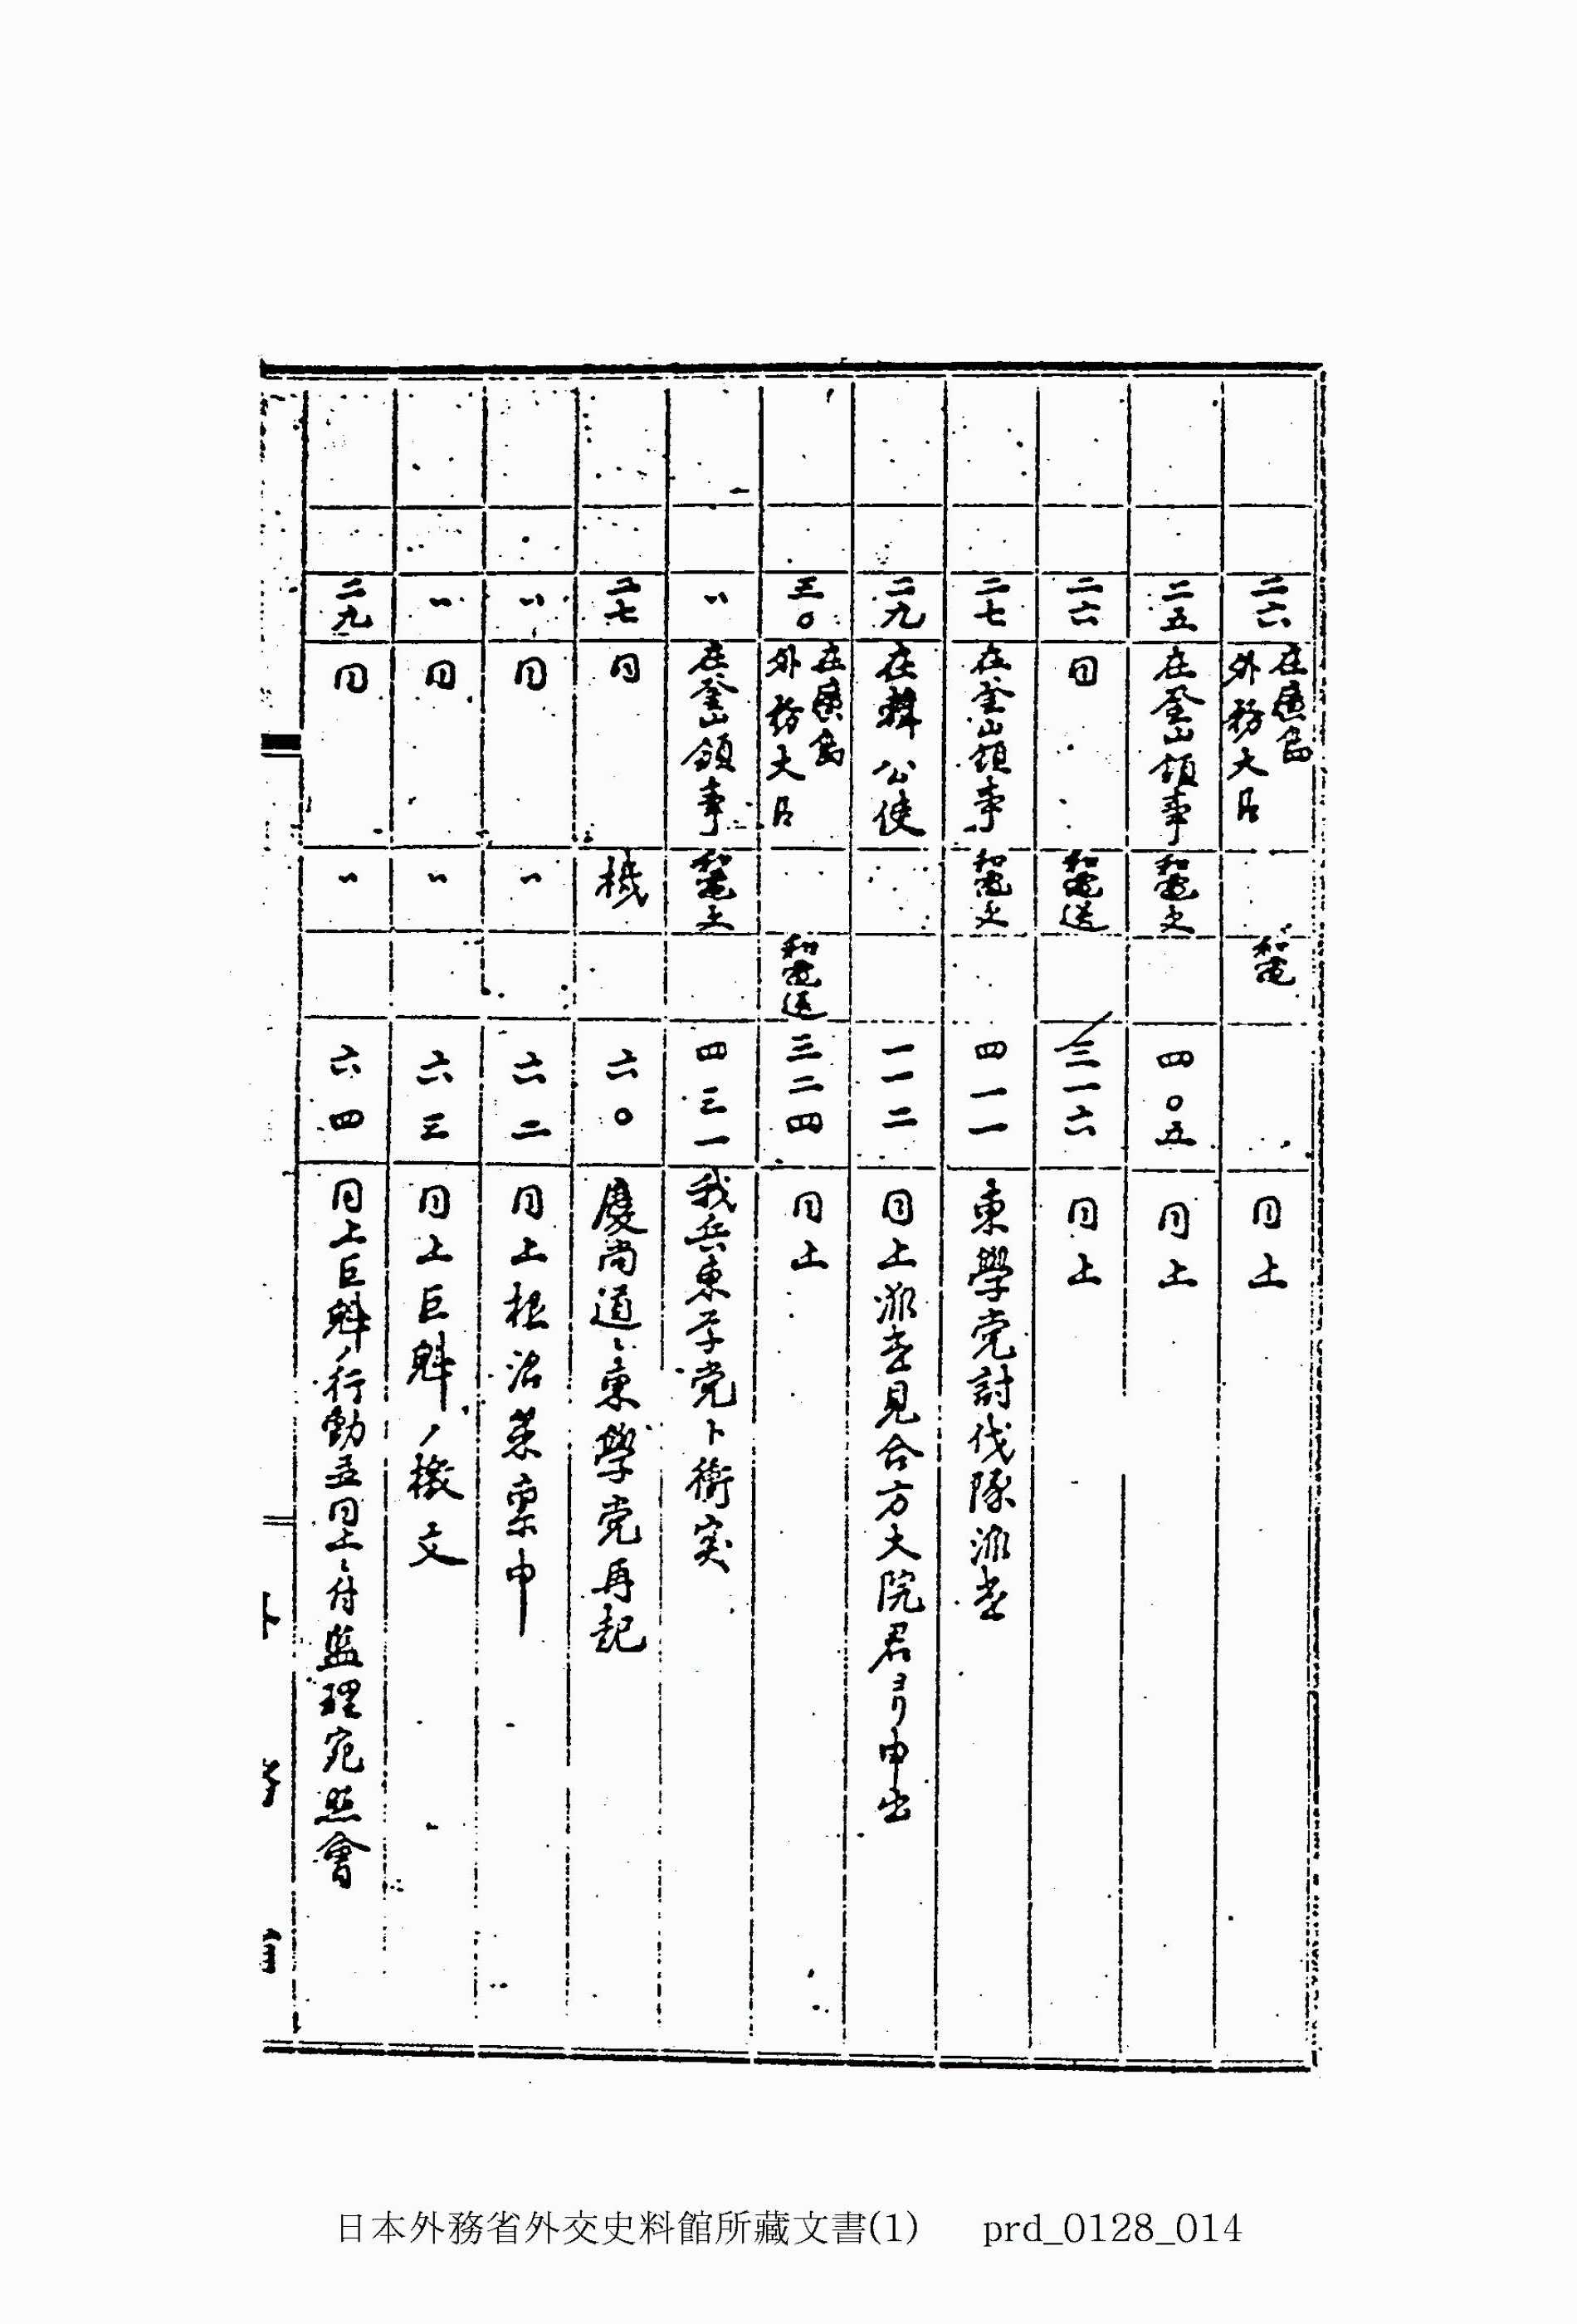 二六 在廣島外務大臣 和電 同上
二五 在釜山領事 和電文 四〇五 同上
二六 同 和電送 三一六 同上
二七 在釜山領事 和電文 四一一 東學党討伐隊派遣
二九 在韓公使 一一二 同上派遣見合方大院君ヨリ申出
三〇 在廣島外務大臣 和電送 三二四 同上
〃 在釜山領事 和電文 四三一 我兵東学党ト衝突
二七 同 機 六〇 慶尚道ニ東學党再起
〃 同 〃 六二 同上根治策稟申
〃 同 〃 六三 同上巨魁ノ檄文
二九 同 〃 六四 同上巨魁ノ行動並同上ニ付監理宛照會
日本外務省外交史料館所藏文書(1) prd_0128_014